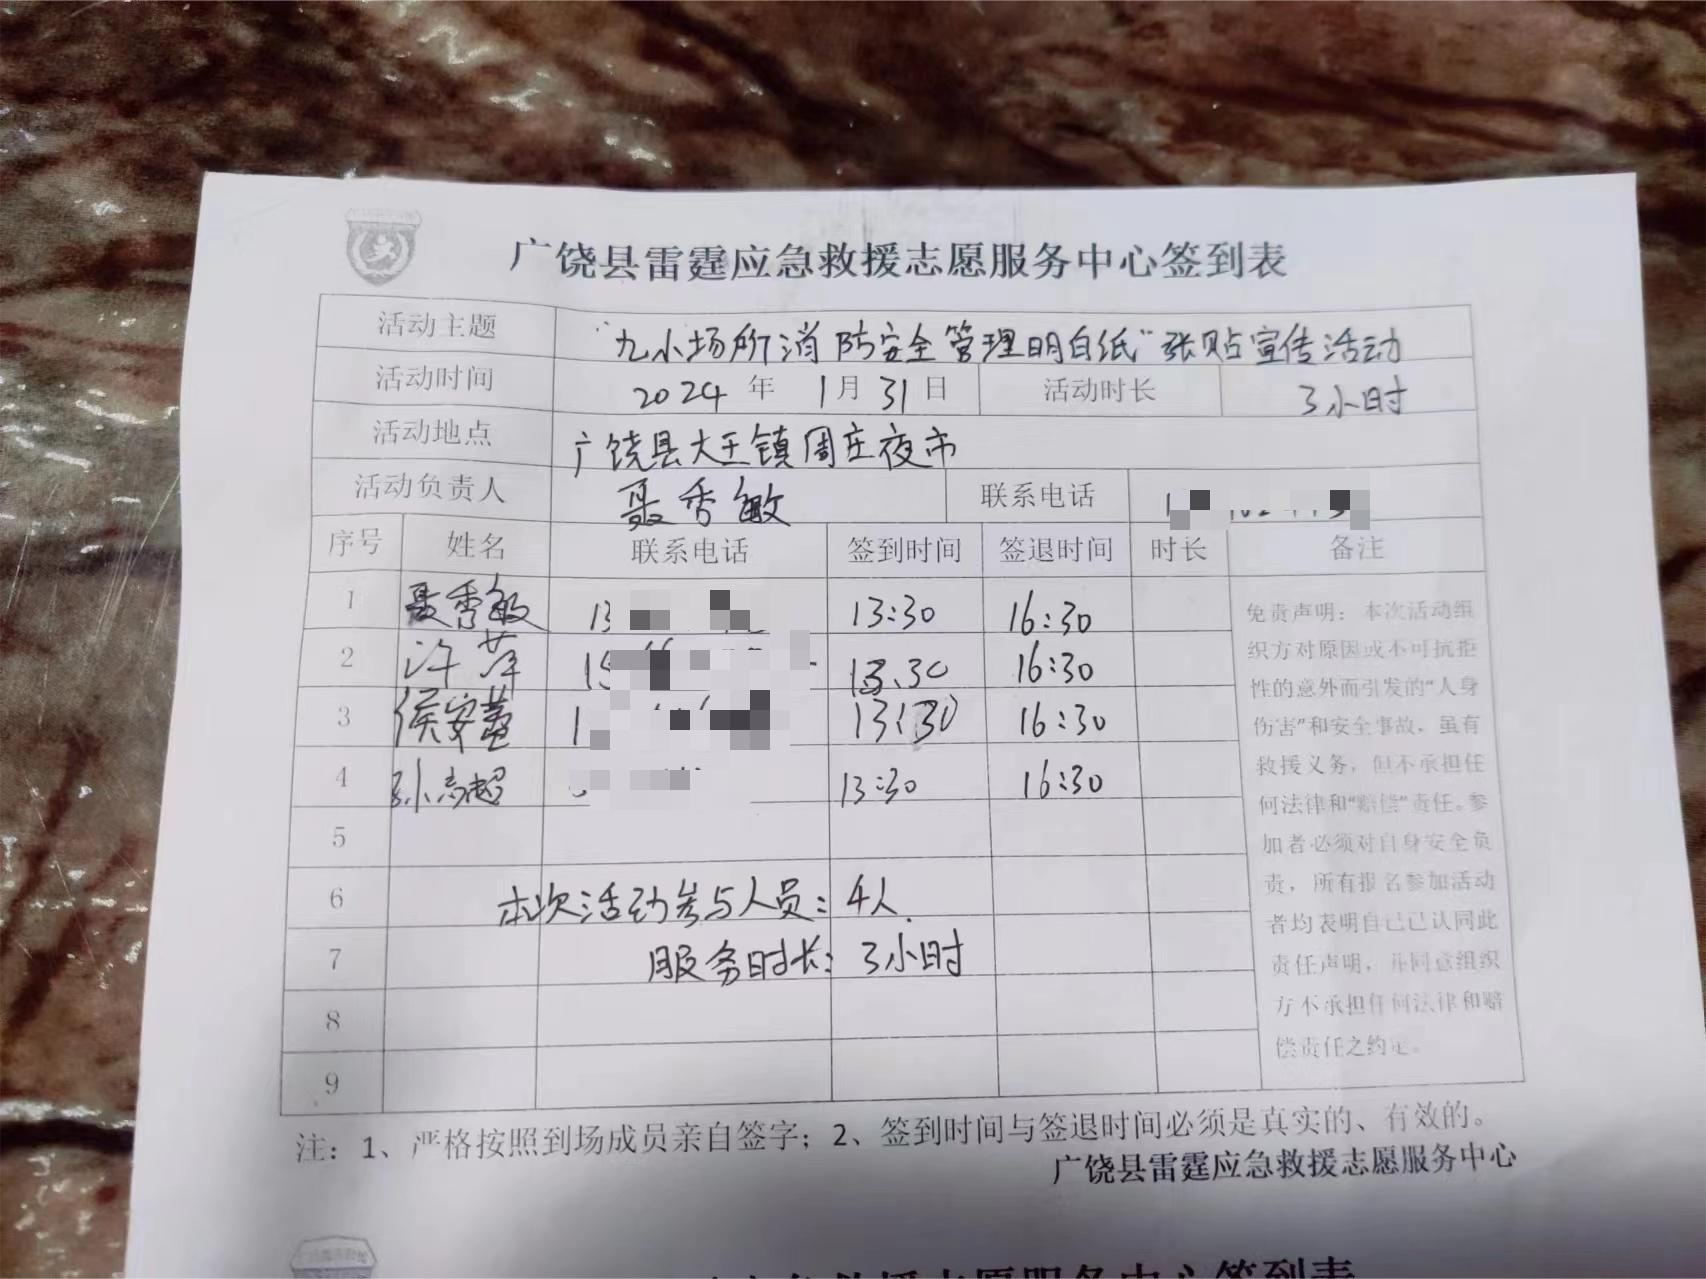 广饶县雷霆应急救援志愿服务中心签到表
活动主题 "九小场所消防安全管理明白纸"张贴宣传活动
活动时间 2024年1月31日 活动时长 3小时
活动地点 广饶县大王镇周庄夜市
活动负责人 聂秀敏 联系电话
序号 姓名 联系电话 签到时间 签退时间 时长 备注
1 聂秀敏 13 13:30 16:30
2 许萍 13:30 16:30
3 侯安 13:30 16:30
4 孙志超 13:30 16:30
5
6 本次活动参与人员:4人.
7 服务时长:3小时
8
9
免责声明：本次活动组
织方对原因或不可抗拒
性的意外而引发的"人身
伤害"和安全事故，虽有
救援义务，但不承担任
何法律和"赔偿"责任。参
加者必须对自身安全负
责，所有报名参加活动
者均表明自己已认同此
责任声明，并同意组织
方不承担任何法律和赔
偿责任之约定。
注：1、严格按照到场成员亲自签字；2、签到时间与签退时间必须是真实的、有效的。
广饶县雷霆应急救援志愿服务中心
应急救援志愿服务中心签到表